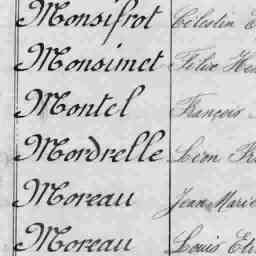 Monsifrot Célestin
Monsimet Félix
Montel François
Mordrelle Léon
Moreau Jean Marie
Moreau Louis